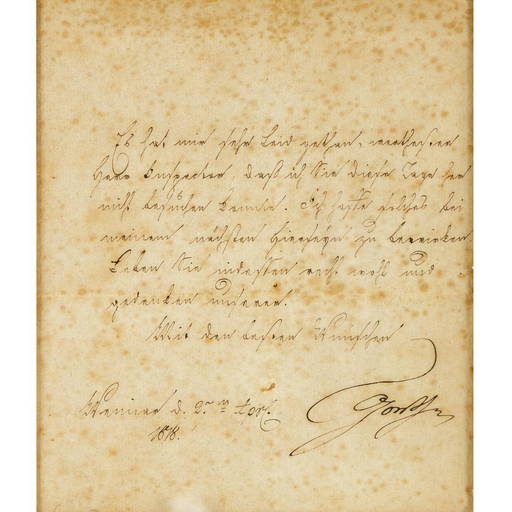 Es hat mir sehr Leid gethan, werthester
Herr Inspector, daß ich Sie diese Tage her
nicht besuchen konnte. Ich hoffe solches bei
meinem nächsten Hierseyn zu bewirken.
Leben Sie indessen recht wohl und
gedenken unserer.
Mit den besten Wünschen
Weimar d. 2. Apr.
1818.
Goethe